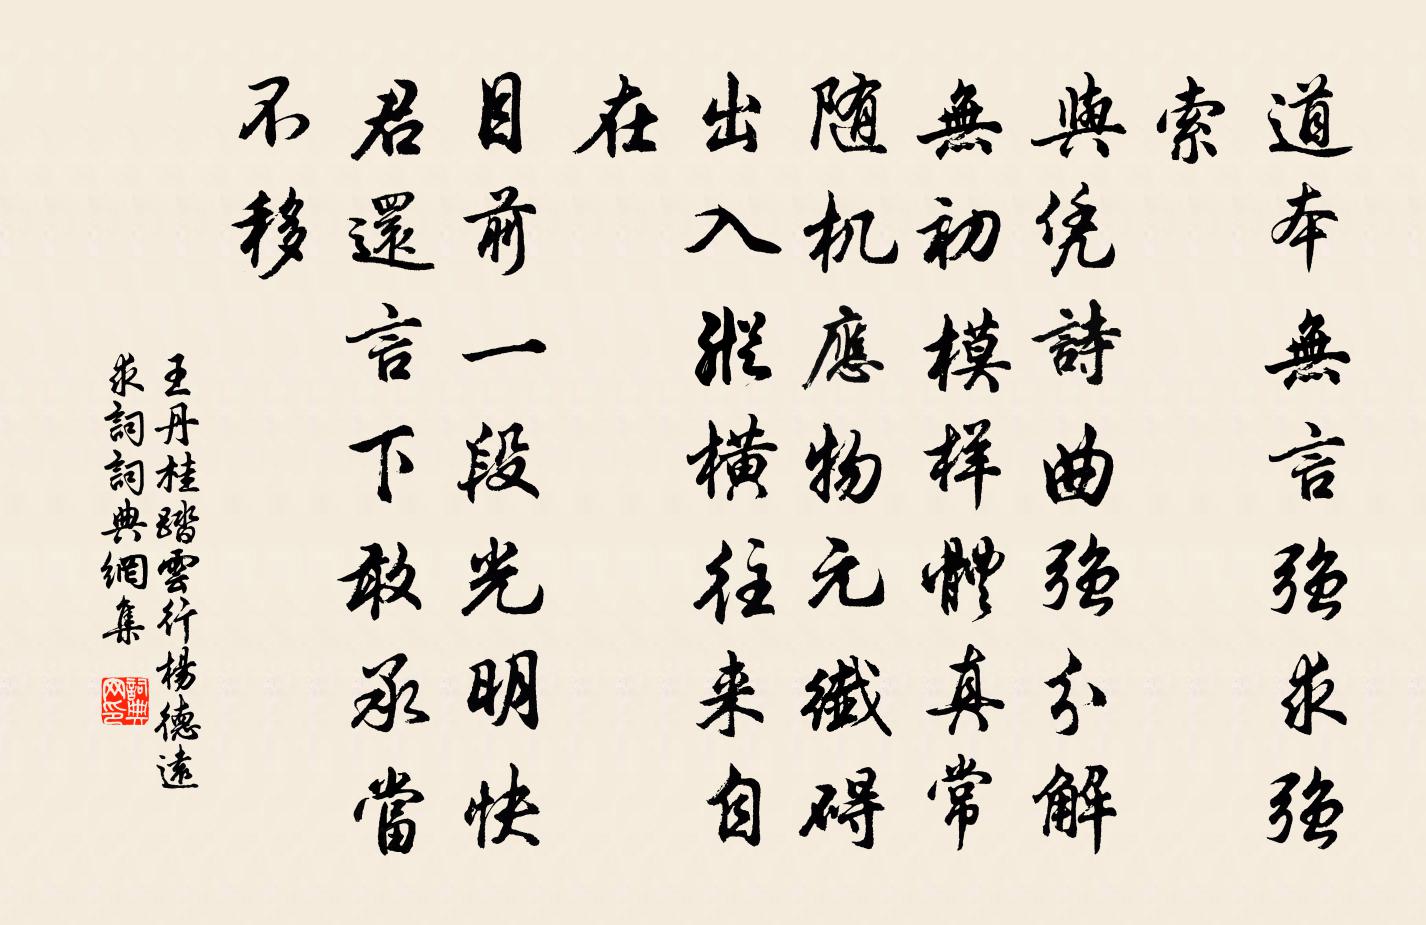 道本無言強求強
索
與凭詩曲強分解
無初模样體真常
随机應物元纖碍
出入縱橫往来自
在
目前一段光明快
君還言下敢承當
不移
王丹桂踏雲行楊德遠
求詞詞典網集
詞典網印